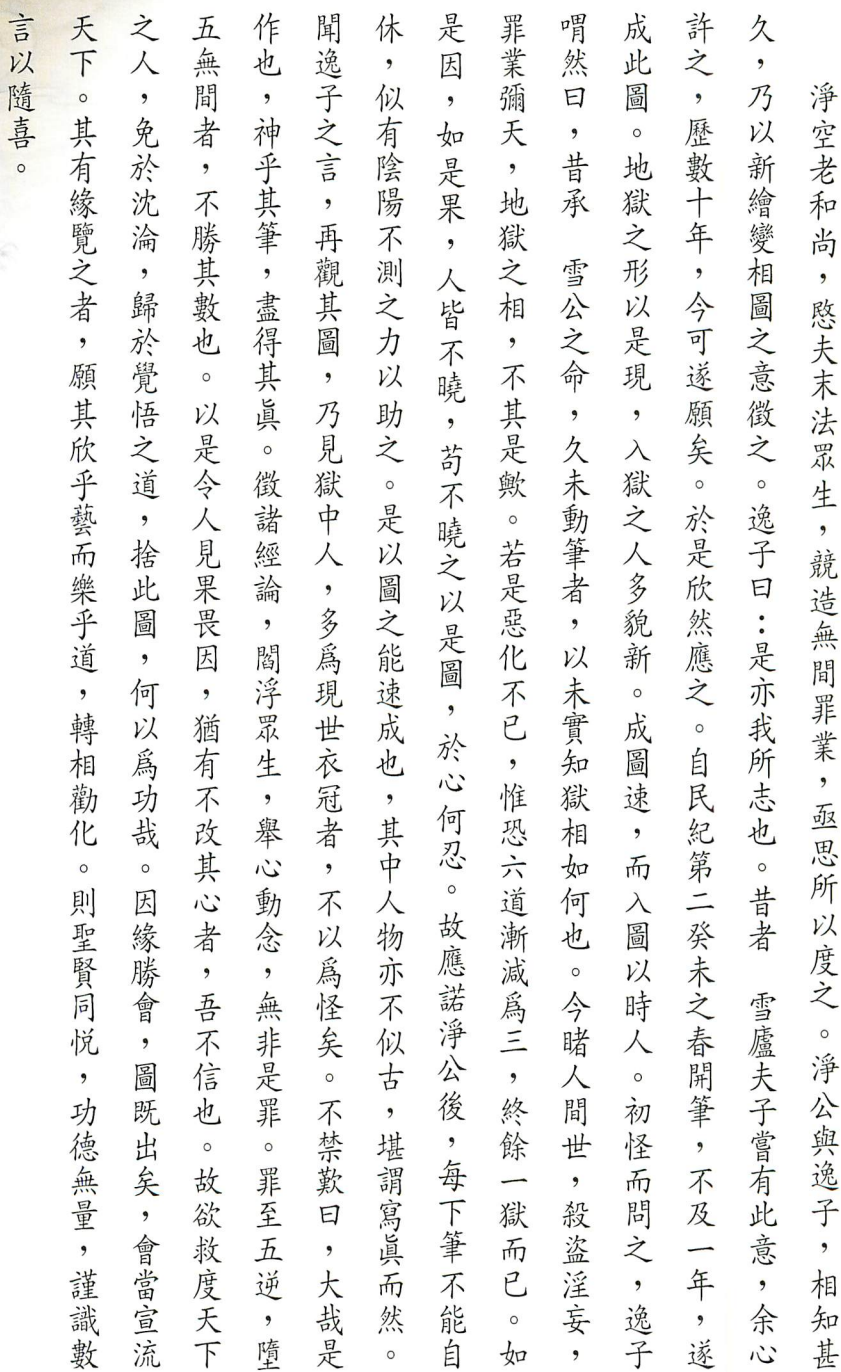 淨空老和尚，愍夫末法眾生，競造無間罪業，亟思所以度之。淨公與逸子，相知甚
久，乃以新繪變相圖之意徵之。逸子曰：是亦我所志也。昔者　雪廬夫子嘗有此意，余心
許之，歷數十年，今可遂願矣。於是欣然應之。自民紀第二癸未之春開筆，不及一年，遂
成此圖。地獄之形以是現，入獄之人多貌新。成圖速，而入圖以時人。初怪而問之，逸子
喟然曰，昔承　雪公之命，久未動筆者，以未實知獄相如何也。今睹人間世，殺盜淫妄，
罪業彌天，地獄之相，不其是歟。若是惡化不已，惟恐六道漸減爲三，終餘一獄而已。如
是因，如是果，人皆不曉，苟不曉之以是圖，於心何忍。故應諾淨公後，每下筆不能自
休，似有陰陽不測之力以助之。是以圖之能速成也，其中人物亦不似古，堪謂寫眞而然。
聞逸子之言，再觀其圖，乃見獄中人，多爲現世衣冠者，不以爲怪矣。不禁歎曰，大哉是
作也，神乎其筆，盡得其眞。徵諸經論，閻浮眾生，舉心動念，無非是罪。罪至五逆，墮
五無間者，不勝其數也。以是令人見果畏因，猶有不改其心者，吾不信也。故欲救度天下
之人，免於沈淪，歸於覺悟之道，捨此圖，何以爲功哉。因緣勝會，圖既出矣，會當宣流
天下。其有緣覽之者，願其欣乎藝而樂乎道，轉相勸化。則聖賢同悅，功德無量，謹識數
言以隨喜。